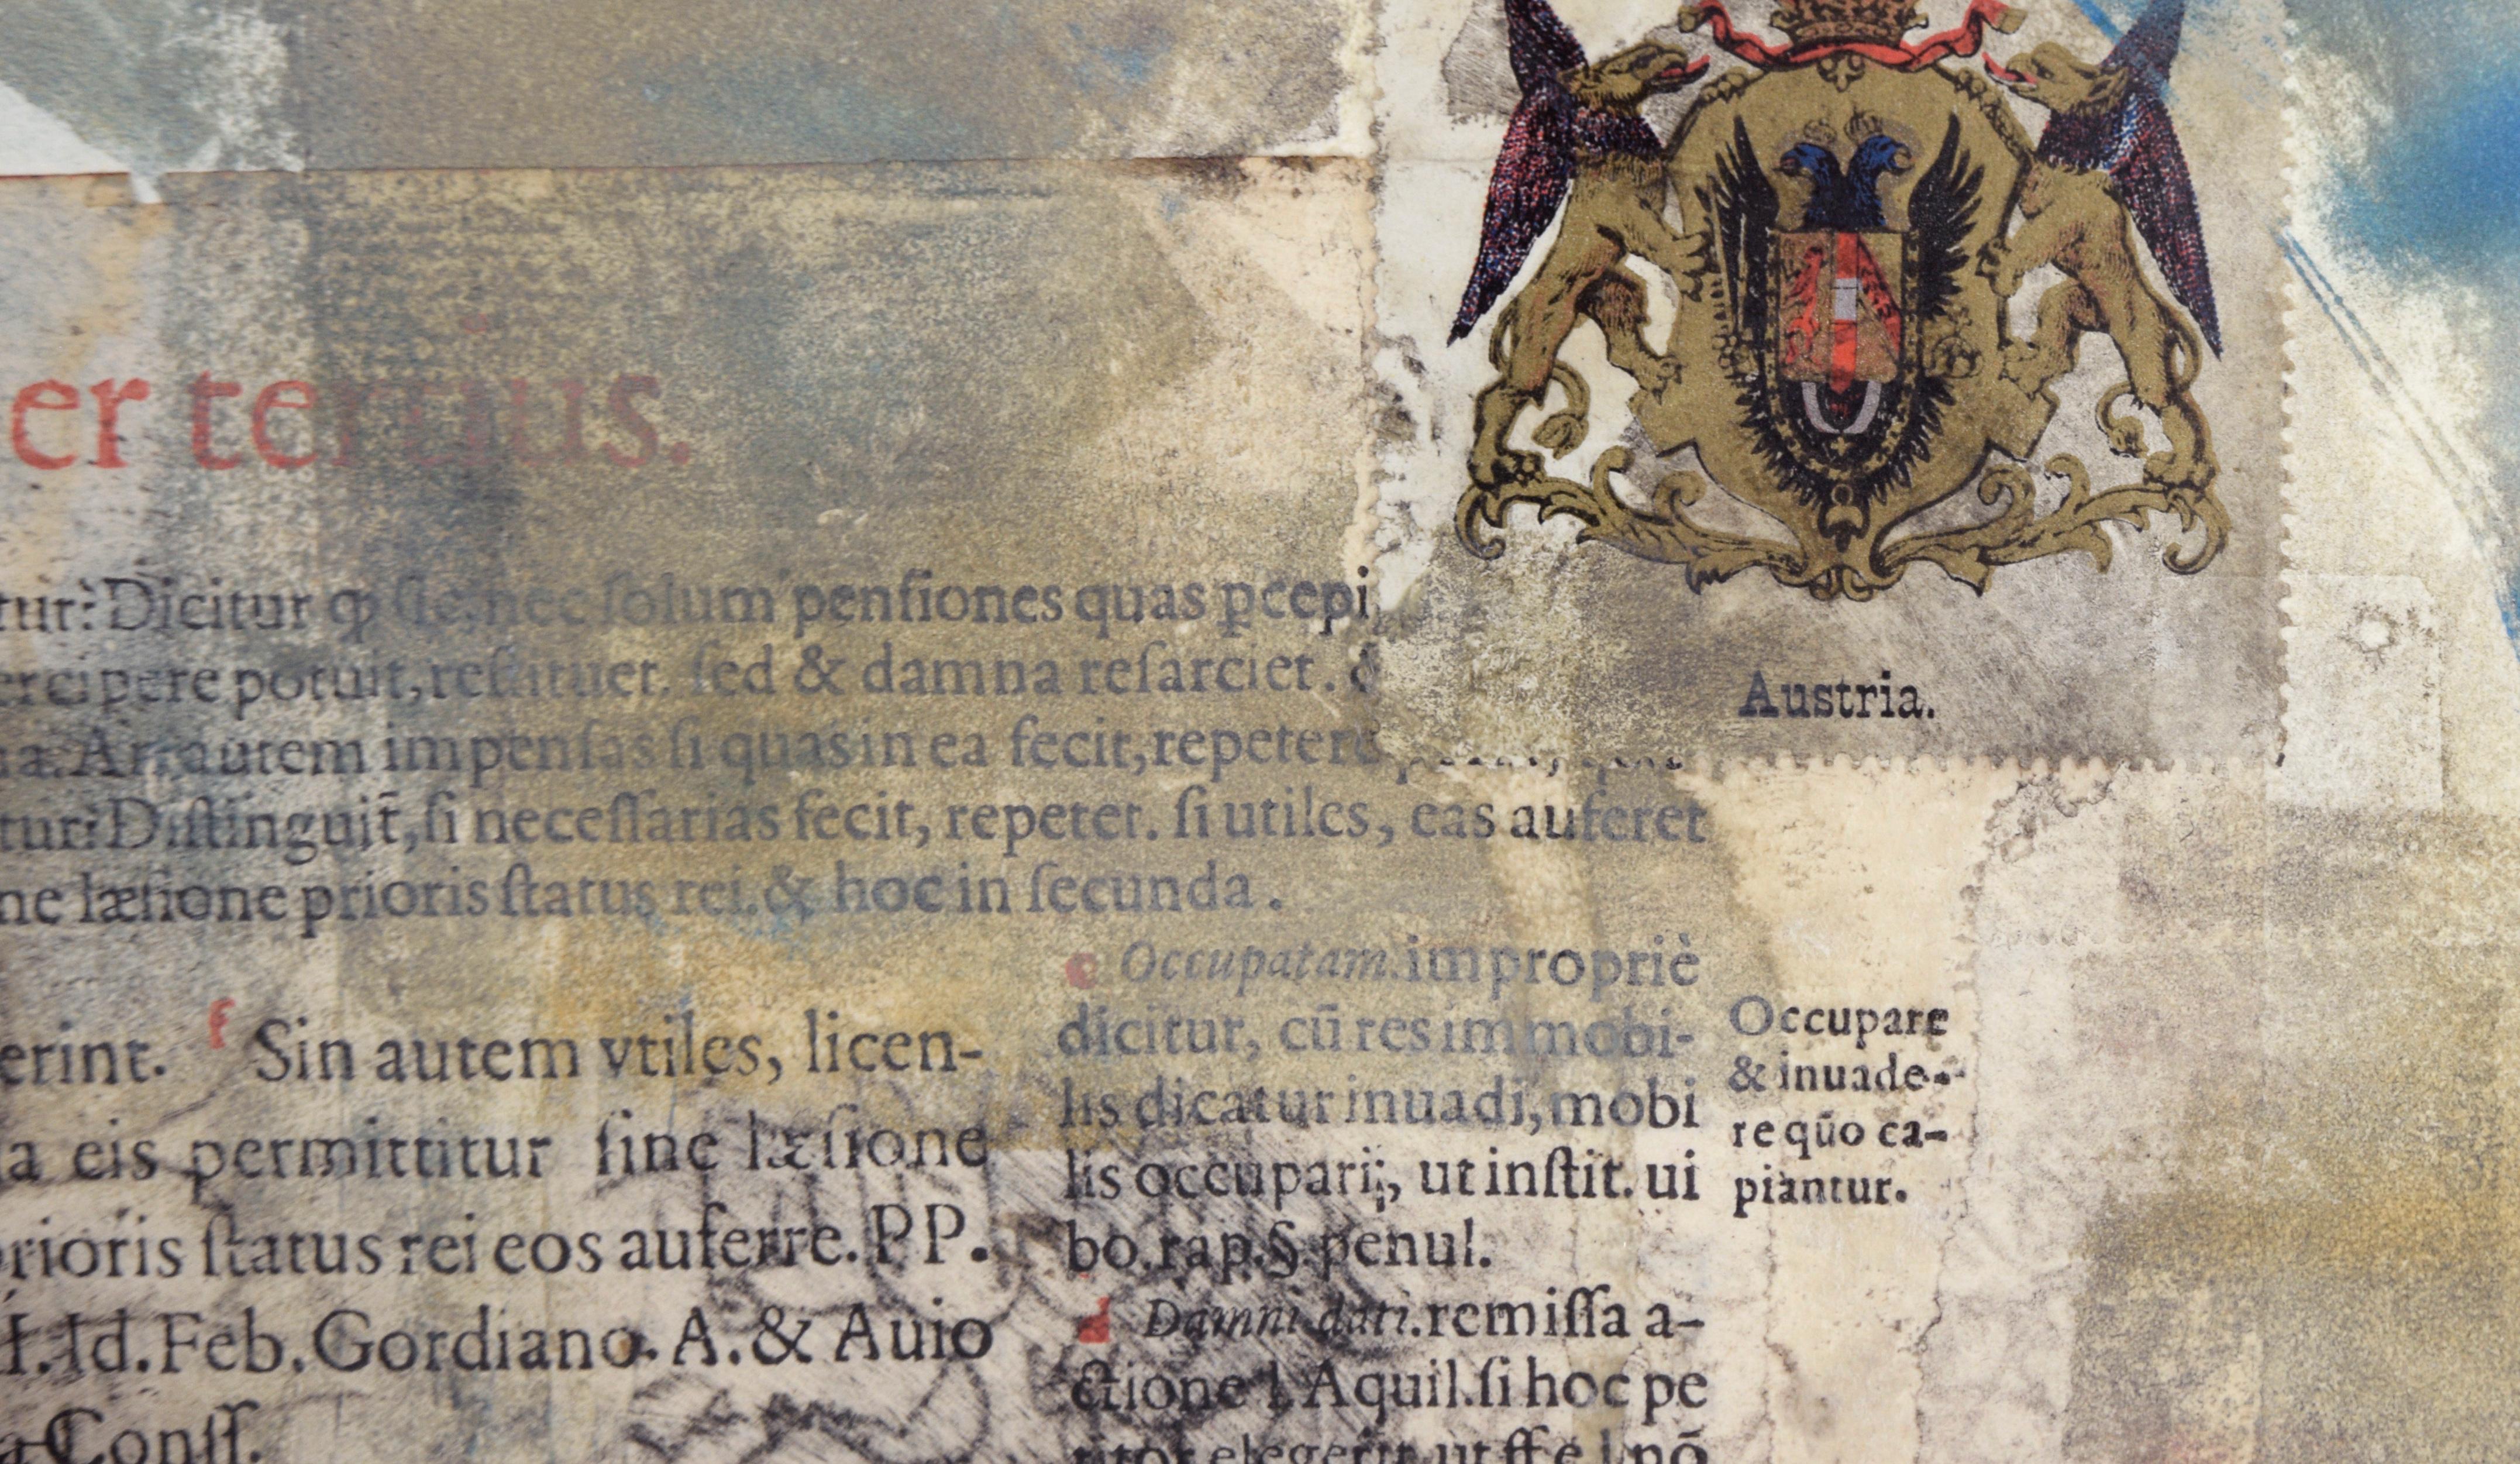 er tertius.
tur: Dicitur ꝙ sic, nec ſolum penſiones quas pcepi
ercipere potuit, reſtituet. ſed & damna reſarciet. &
a. An autem impenſas ſi quas in ea fecit, repetere
tur: Diſtinguit, ſi neceſſarias fecit, repetet. ſi utiles, eas auferet
ne læſione prioris ſtatus rei. & hoc in ſecunda.
erint. f Sin autem vtiles, licen-
a eis permittitur ſine læſione
rioris ſtatus rei eos auferre. PP.
Id. Feb. Gordiano. A. & Auio
a Conſſ.
Austria.
c Occupatam. impropriè
dicitur, cū res immobi-
lis dicatur inuadi, mobi
lis occupari, ut inſtit. ui
bo. rap. §. penul.
d Damni dati. remiſſa a-
ctione l Aquil. ſi hoc pe
elegerit, ut ff e l nō
Occupare
& inuade-
re quo ca-
piantur.